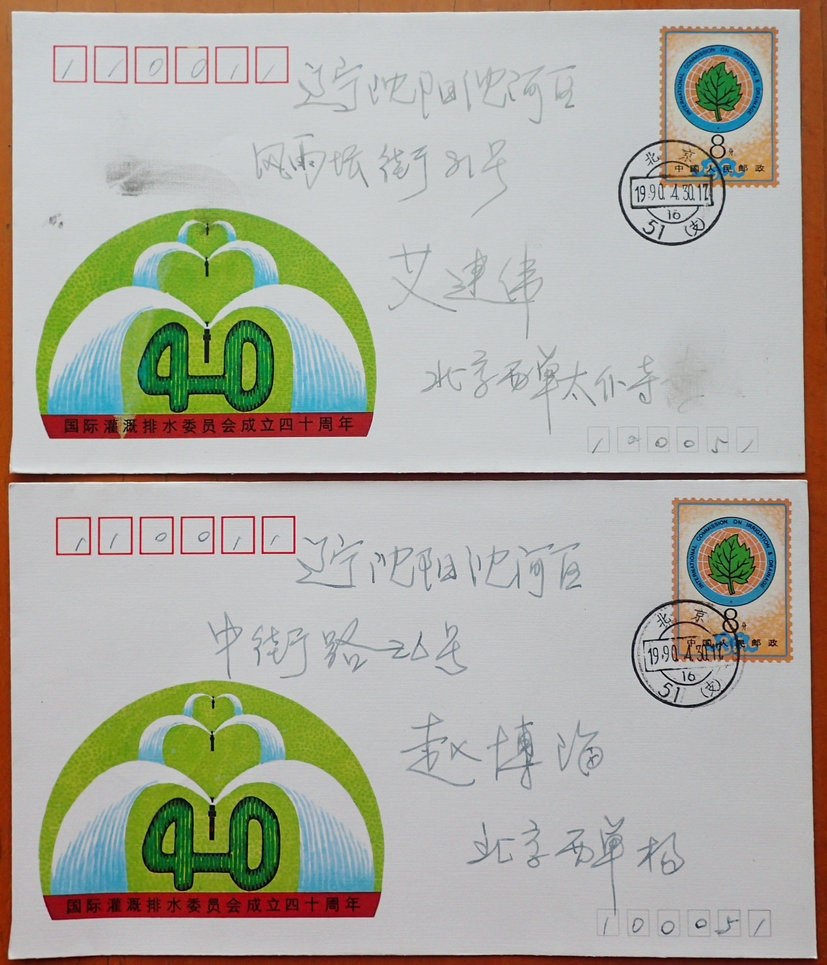 110011
辽宁沈阳沈河区
风雨坛街81号
艾建伟
北京西单太仆寺
100051
INTERNATIONAL COMMISSION ON IRRIGATION & DRAINAGE
8分
中国人民邮政
北京
1990.4.30.17
16
51(支)
40
国际灌溉排水委员会成立四十周年
110011
辽宁沈阳沈河区
中街路26号
赵博海
北京西单杨
100051
INTERNATIONAL COMMISSION ON IRRIGATION & DRAINAGE
8分
中国人民邮政
北京
1990.4.30.17
16
51(支)
40
国际灌溉排水委员会成立四十周年